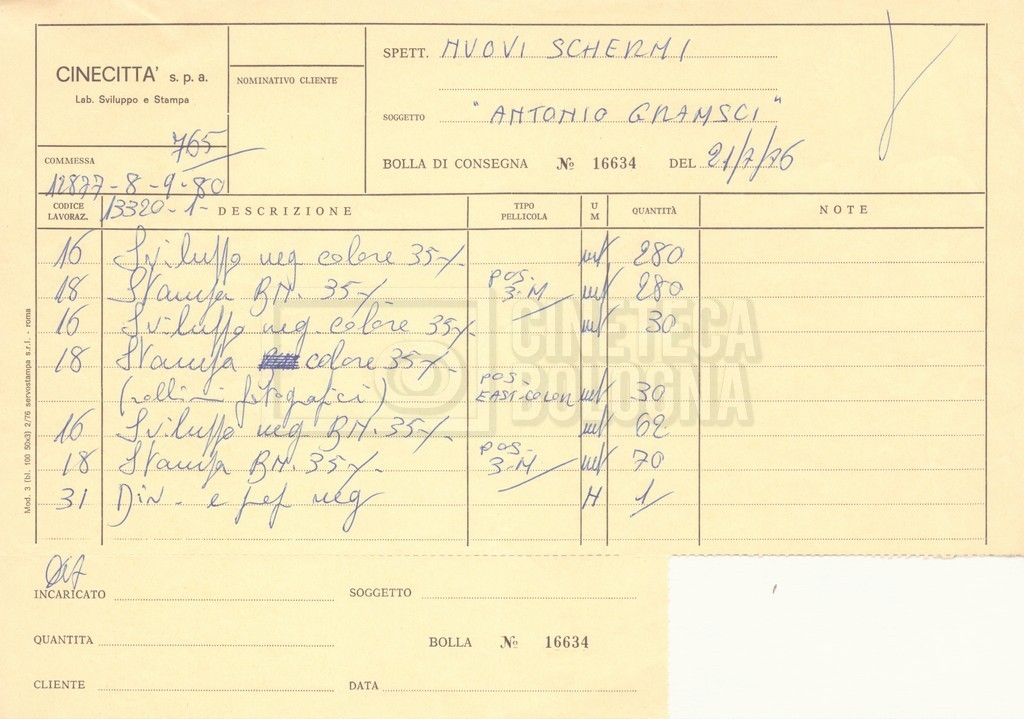 CINECITTA' s.p.a.
Lab. Sviluppo e Stampa
NOMINATIVO CLIENTE
SPETT. NUOVI SCHERMI
SOGGETTO "ANTONIO GRAMSCI"
BOLLA DI CONSEGNA № 16634 DEL 21/7/76
765
COMMESSA
12877-8-9-80
13320-1-
CODICE LAVORAZ. DESCRIZIONE TIPO PELLICOLA U M QUANTITÀ NOTE
16 Sviluppo neg colore 35 mt 280
18 Stampa BN. 35 POS. 3-M mt 280
16 Sviluppo neg. colore 35 mt 30
18 Stampa colore 35
(rollini fotografici) POS. EAST-COLOR mt 30
16 Sviluppo neg BN. 35 mt 62
18 Stampa BN. 35 POS. 3-M mt 70
31 Div. e neg H 1
CINETECA
BOLOGNA
Mod. 3 (bl. 100 50x3) 2/76 servostampa s.r.l. - roma
INCARICATO SOGGETTO
QUANTITA BOLLA № 16634
CLIENTE DATA